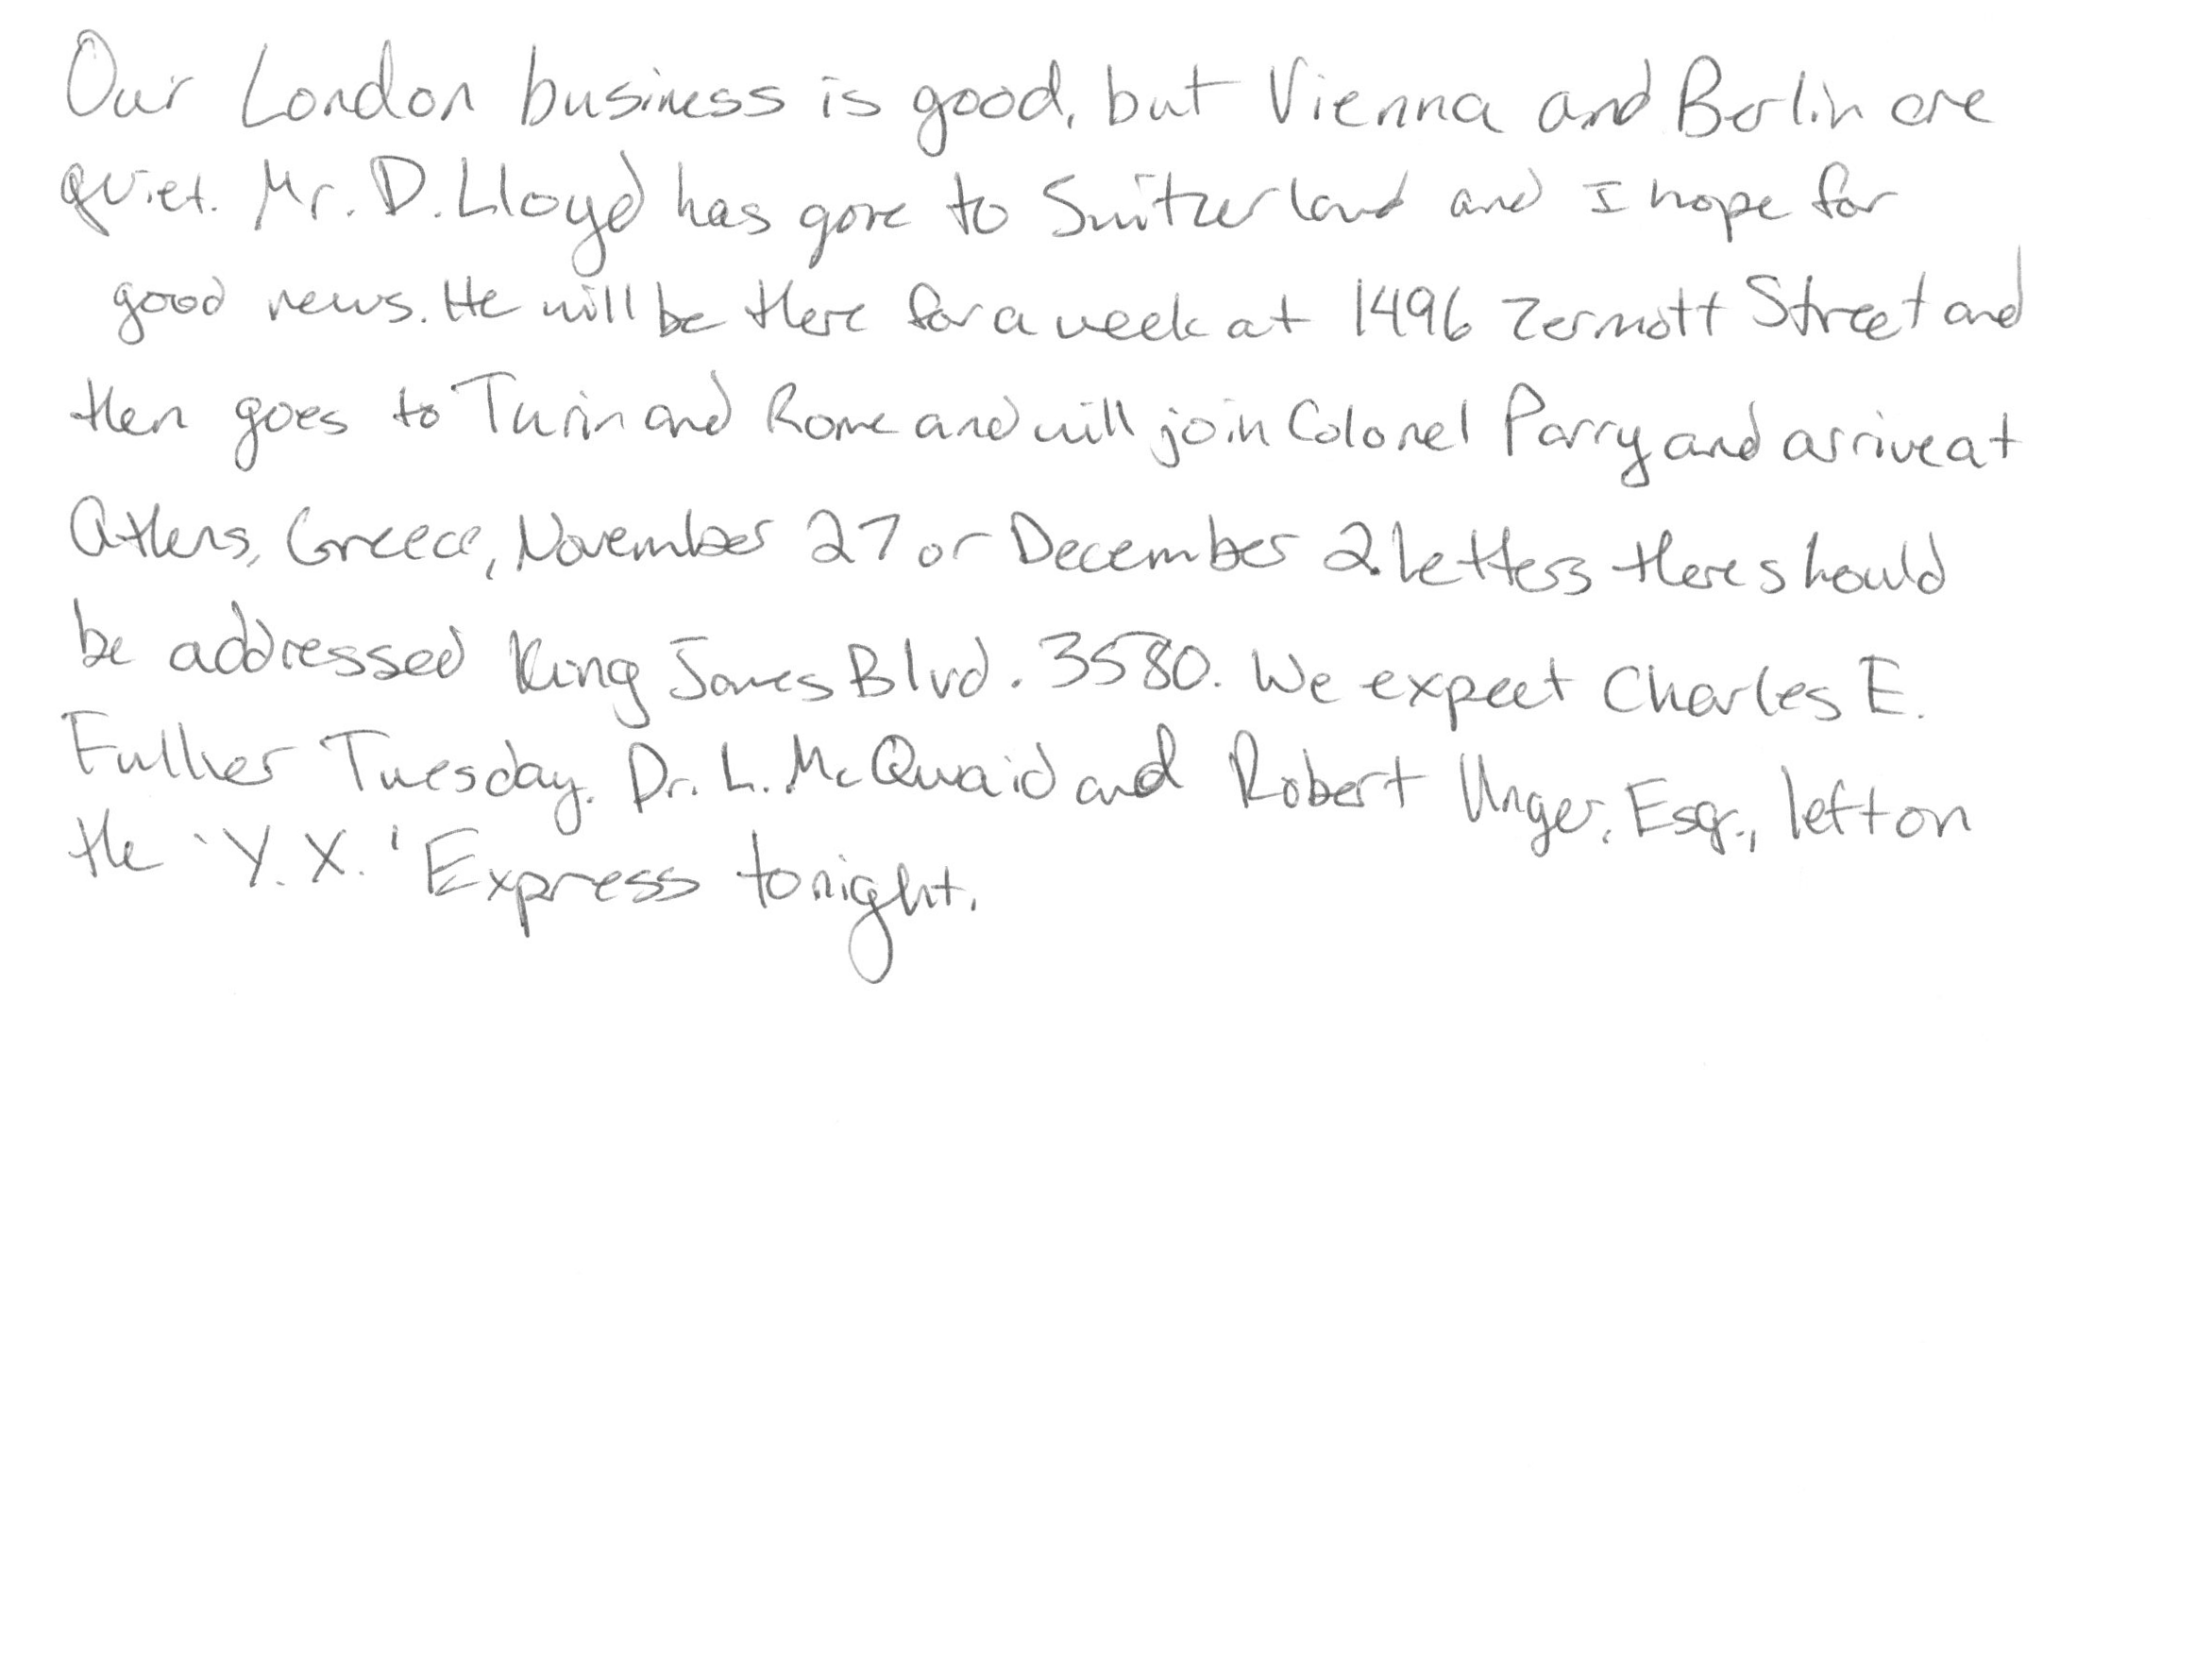 Our London business is good, but Vienna and Berlin are
quiet. Mr. D. Lloyd has gone to Switzerland and I hope for
good news. He will be there for a week at 1496 Zermott Street and
then goes to Turin and Rome and will join Colonel Parry and arrive at
Athens, Greece, November 27 or December 2. Letters there should
be addressed King James Blvd. 3580. We expect Charles E.
Fuller Tuesday. Dr. L. McQuaid and Robert Unger, Esq., left on
the 'Y.X.' Express tonight.